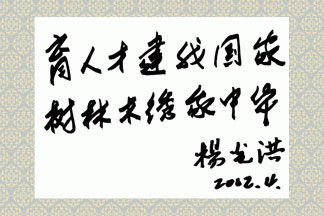 育人才建我国家
树林木绣我中华
楊光洪
2012.4.